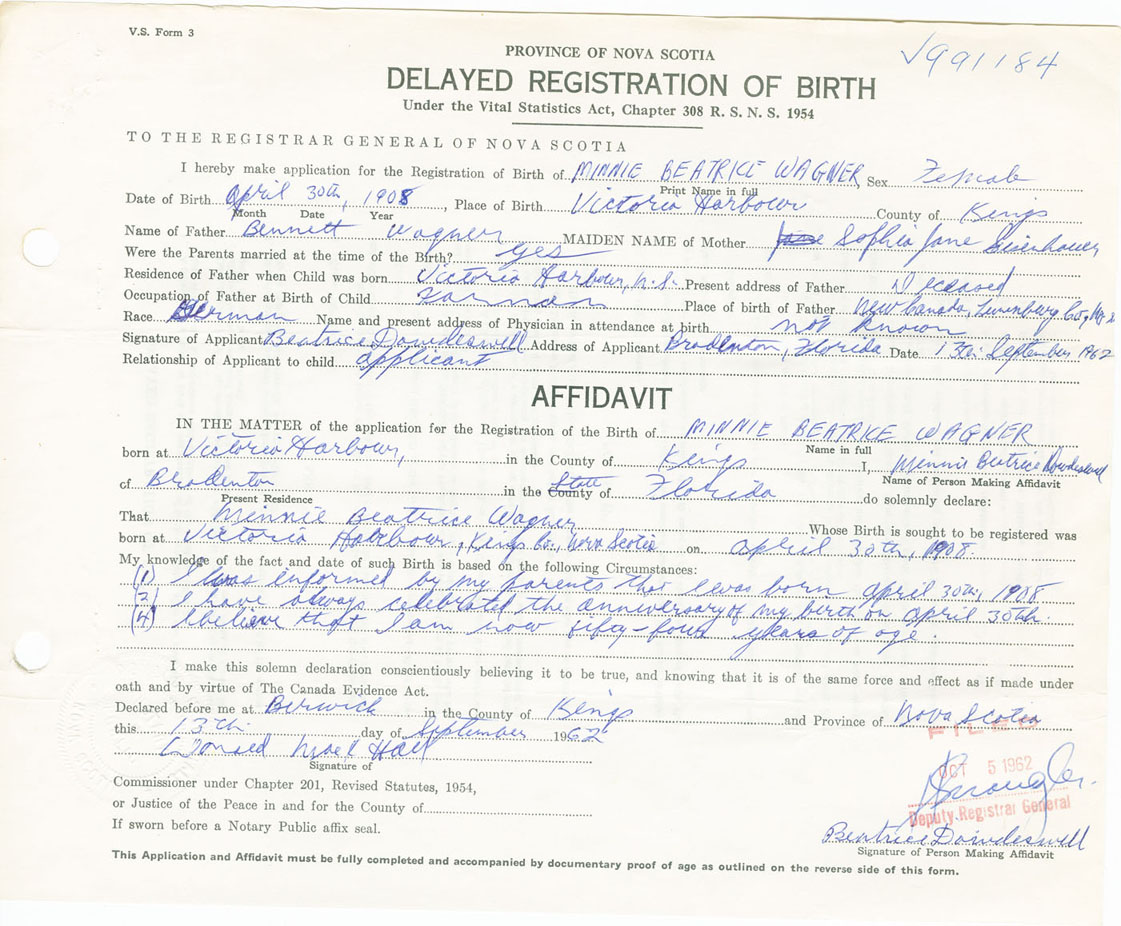 V.S. Form 3
√991184
PROVINCE OF NOVA SCOTIA
DELAYED REGISTRATION OF BIRTH
Under the Vital Statistics Act, Chapter 308 R. S. N. S. 1954
TO THE REGISTRAR GENERAL OF NOVA SCOTIA
I hereby make application for the Registration of Birth of MINNIE BEATRICE WAGNER, Sex Female
Print Name in full
Date of Birth April 30th, 1908, Place of Birth Victoria Harbour County of Kings
Month Date Year
Name of Father Bennett Wagner MAIDEN NAME of Mother Sophia Jane Eisenhauer
Were the Parents married at the time of the Birth? yes
Residence of Father when Child was born Victoria Harbour, N.S. Present address of Father Deceased
Occupation of Father at Birth of Child Farmer Place of birth of Father New Canada, Lunenburg Co., N.S.
Race German Name and present address of Physician in attendance at birth not known
Signature of Applicant Beatrice Dowdeswell Address of Applicant Bradenton, Florida Date 13th September, 1962
Relationship of Applicant to child applicant
AFFIDAVIT
IN THE MATTER of the application for the Registration of the Birth of MINNIE BEATRICE WAGNER
Name in full
born at Victoria Harbour, in the County of Kings I, Minnie Beatrice Dowdeswell
Name of Person Making Affidavit
of Bradenton in the County State of Florida do solemnly declare:
Present Residence
That Minnie Beatrice Wagner Whose Birth is sought to be registered was
born at Victoria Harbour, Kings Co., Nova Scotia on April 30th, 1908
My knowledge of the fact and date of such Birth is based on the following Circumstances:
(1) I was informed by my parents that I was born April 30th, 1908
(2) I have always celebrated the anniversary of my birth on April 30th.
(4) I believe that I am now fifty-four years of age.
I make this solemn declaration conscientiously believing it to be true, and knowing that it is of the same force and effect as if made under
oath and by virtue of The Canada Evidence Act.
Declared before me at Berwick in the County of Kings and Province of Nova Scotia
this 13th day of September 1962
FILED
Donald Noel Hall
Signature of
OCT 5 1962
Commissioner under Chapter 201, Revised Statutes, 1954,
or Justice of the Peace in and for the County of
Deputy Registrar General
If sworn before a Notary Public affix seal.
Beatrice Dowdeswell
Signature of Person Making Affidavit
This Application and Affidavit must be fully completed and accompanied by documentary proof of age as outlined on the reverse side of this form.